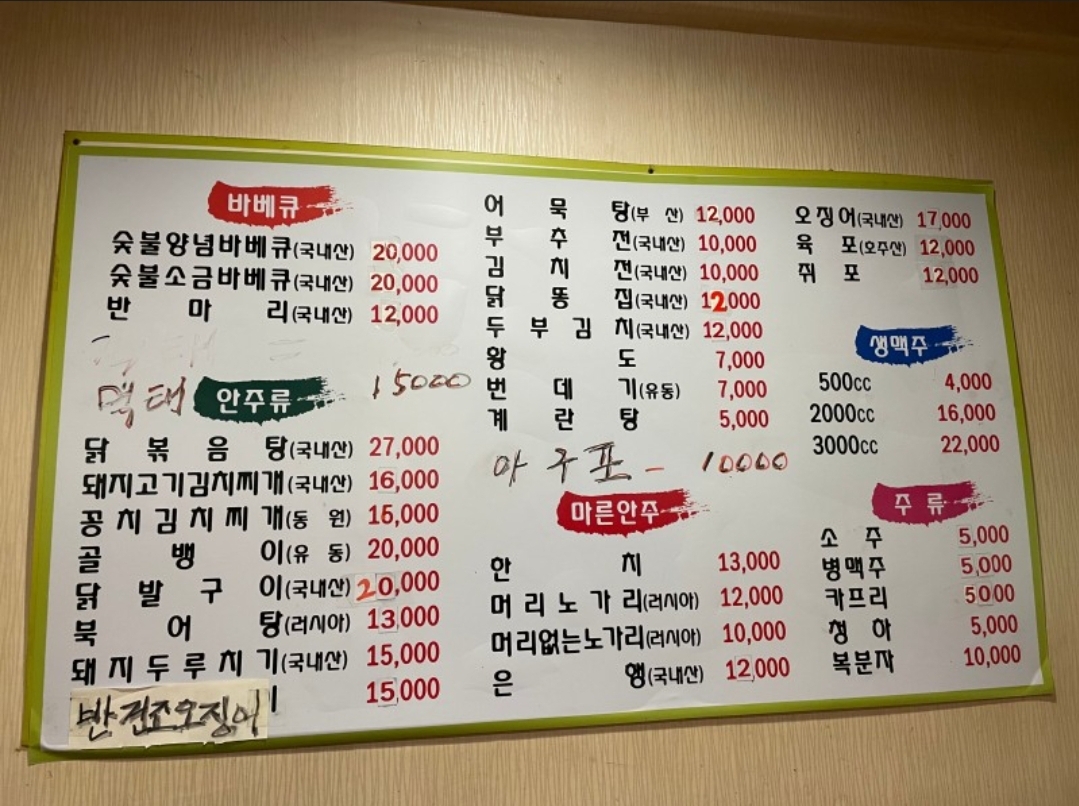 바베큐
숯불양념바베큐(국내산) 20,000
숯불소금바베큐(국내산) 20,000
반마리(국내산) 12,000
먹태 15000
안주류
닭볶음탕(국내산) 27,000
돼지고기김치찌개(국내산) 16,000
꽁치김치찌개(동원) 16,000
골뱅이(유동) 20,000
닭발구이(국내산) 20,000
북어탕(러시아) 13,000
돼지두루치기(국내산) 15,000
반건조오징어 15,000
어묵탕(부산) 12,000
부추전(국내산) 10,000
김치전(국내산) 10,000
닭똥집(국내산) 12,000
두부김치(국내산) 12,000
황도 7,000
번데기(유동) 7,000
계란탕 5,000
아구포 - 10000
마른안주
한치 13,000
머리노가리(러시아) 12,000
머리없는노가리(러시아) 10,000
은행(국내산) 12,000
오징어(국내산) 17,000
육포(호주산) 12,000
쥐포 12,000
생맥주
500cc 4,000
2000cc 16,000
3000cc 22,000
주류
소주 5,000
병맥주 5,000
카프리 5000
청하 5,000
복분자 10,000